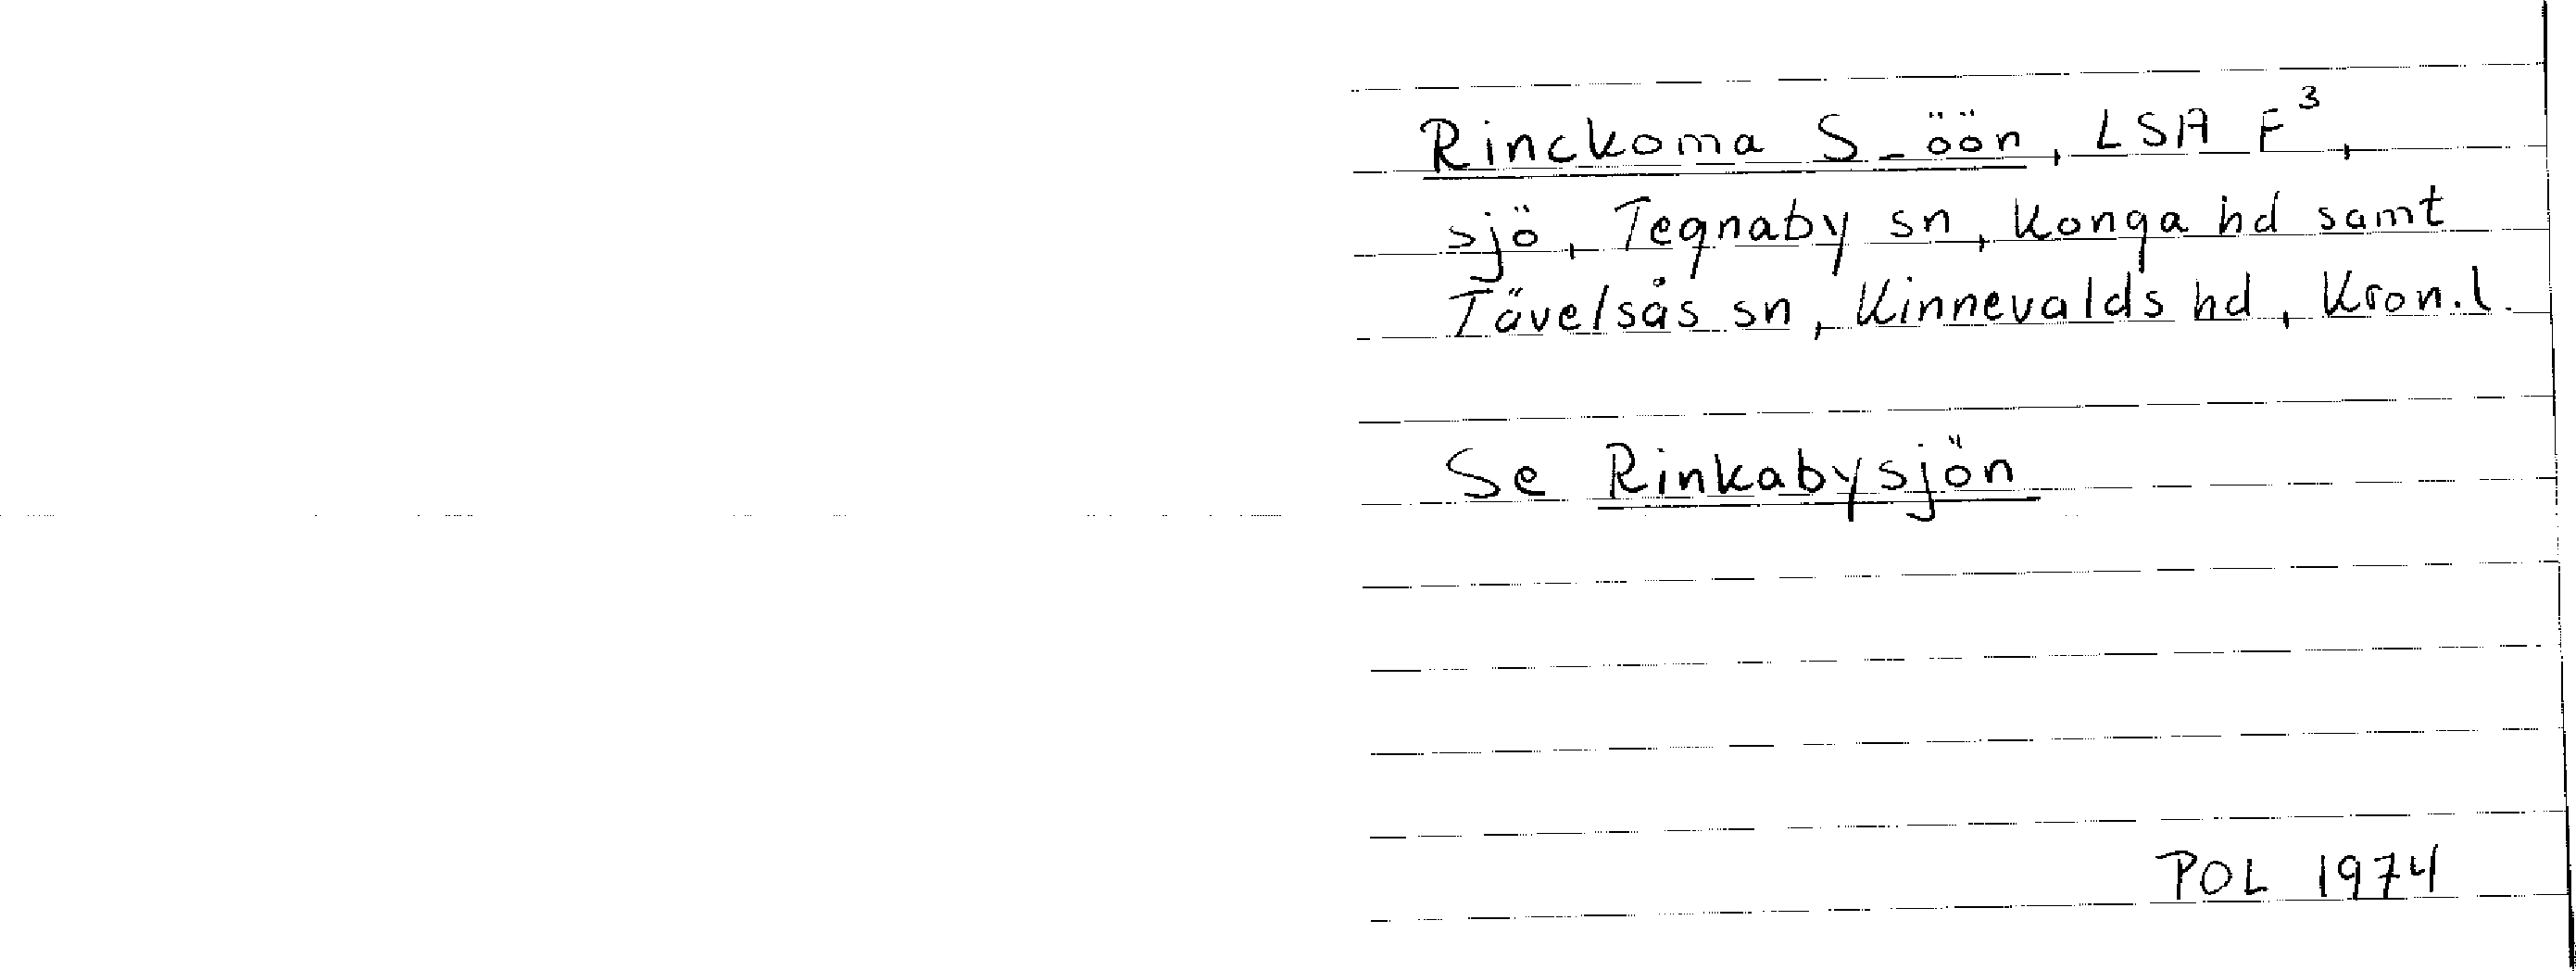 Rinckoma S-öön, LSA F³,
sjö, Tegnaby sn, Konga hd samt
Tävelsås sn, Kinnevalds hd, Kron.l.
Se Rinkabysjön
POL 1974